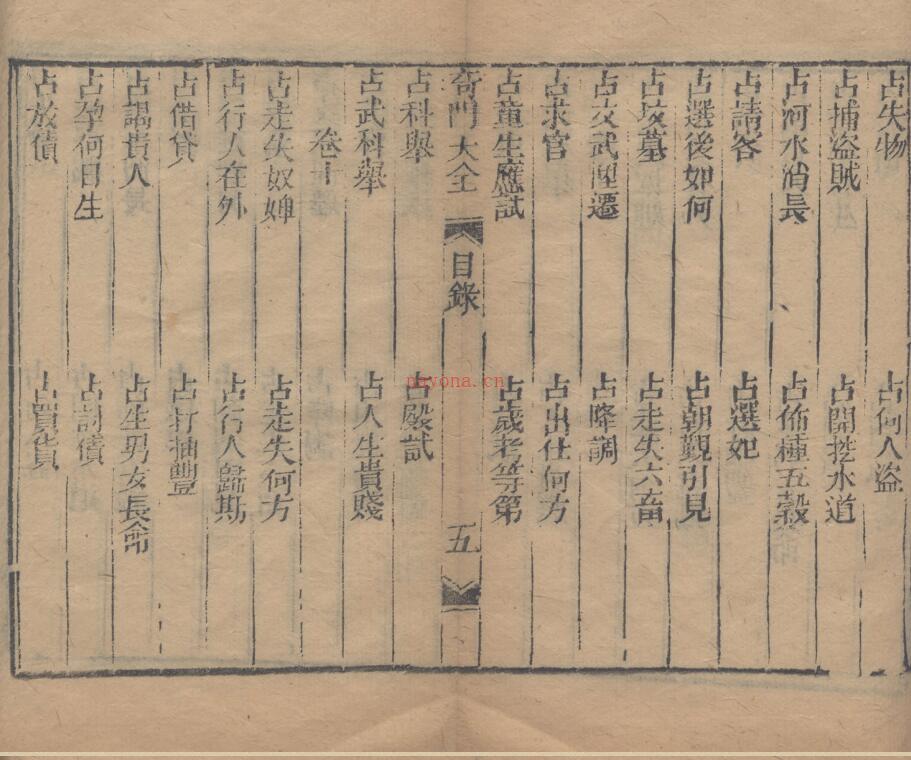 占失物　占何人盜
占捕盜賊　占開挖水道
占河水消長　占佈種五穀
占請客　占選妃
占選後如何　占朝覲引見
占坟墓　占走失六畜
占文武陞遷　占降調
占求官　占出仕何方
占童生應試　占歲考等第
奇門大全　目錄　五
占科舉　占殿試
占武科舉　占人生貴賤
卷十
占走失奴婢　占走失何方
占行人在外　占行人歸期
占借貸　占打抽豐
占謁貴人　占生男女長命
占孕何日生　占討債
占放債　占買貨
nayona.cn